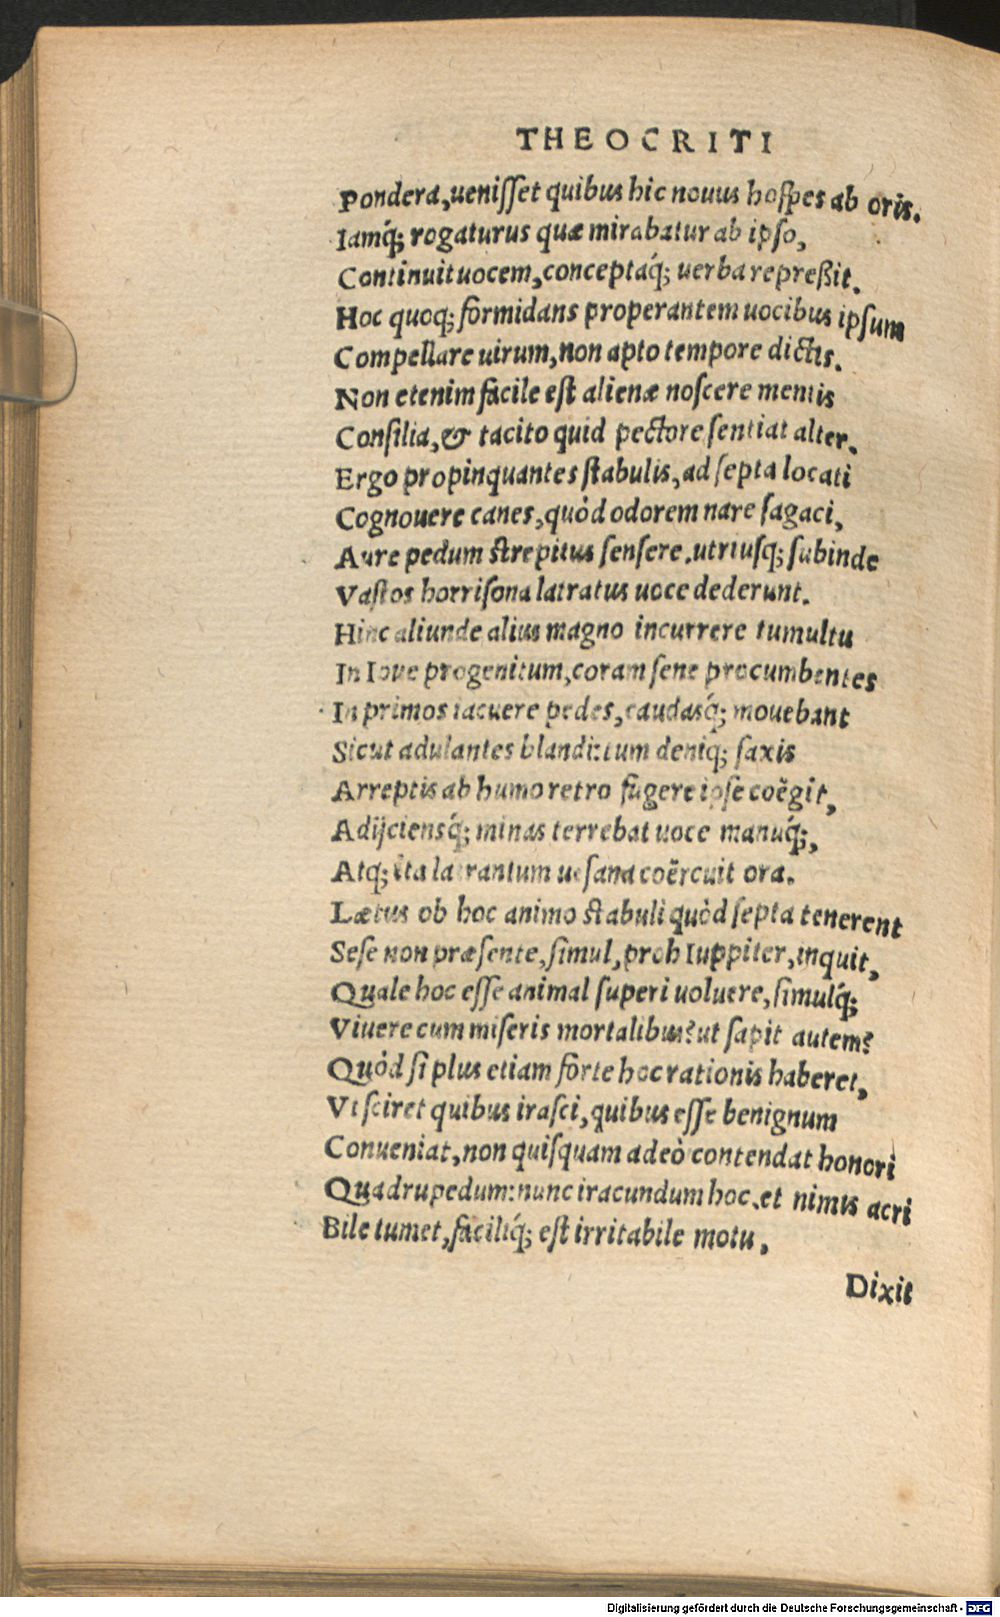 THEOCRITI
Pondera, uenisset quibus hic nouus hospes ab oris.
Iamq́; rogaturus quæ mirabatur ab ipso,
Continuit uocem, conceptaq́; uerba repreßit.
Hoc quoq; formidans properantem uocibus ipsum
Compellare uirum, non apto tempore dictis.
Non etenim facile est alienæ noscere mentis
Consilia, & tacito quid pectore sentiat alter.
Ergo propinquantes stabulis, ad septa locati
Cognouere canes, quòd odorem nare sagaci,
Aure pedum strepitus sensere. utriusq; subinde
Vastos horrisona latratus uoce dederunt.
Hinc aliunde alius magno incurrere tumultu
In Ioue progenitum, coram sene procumbentes
In primos iacuere pedes, caudasq́; mouebant
Sicut adulantes blandi: tum deniq; saxis
Arreptis ab humo retro fugere ipse coëgit,
Adijciensq́; minas terrebat uoce manuq́;,
Atq; ita latrantum uesana coërcuit ora.
Lætus ob hoc animo stabuli quòd septa tenerent
Sese non præsente, simul, proh Iuppiter, inquit,
Quale hoc esse animal superi uoluere, simulq́;
Viuere cum miseris mortalibus? ut sapit autem?
Quòd si plus etiam forte hoc rationis haberet,
Vt sciret quibus irasci, quibus esse benignum
Conueniat, non quisquam adeò contendat honori
Quadrupedum: nunc iracundum hoc, et nimis acri
Bile tumet, faciliq́; est irritabile motu,
Dixit
Digitalisierung gefördert durch die Deutsche Forschungsgemeinschaft - DFG